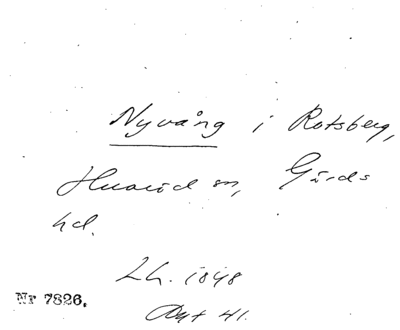 Nyvång i Rotsberg,
Huaröd sn, Gärds
hd.
Lh. 1848
Nr 7826.
Akt 41.